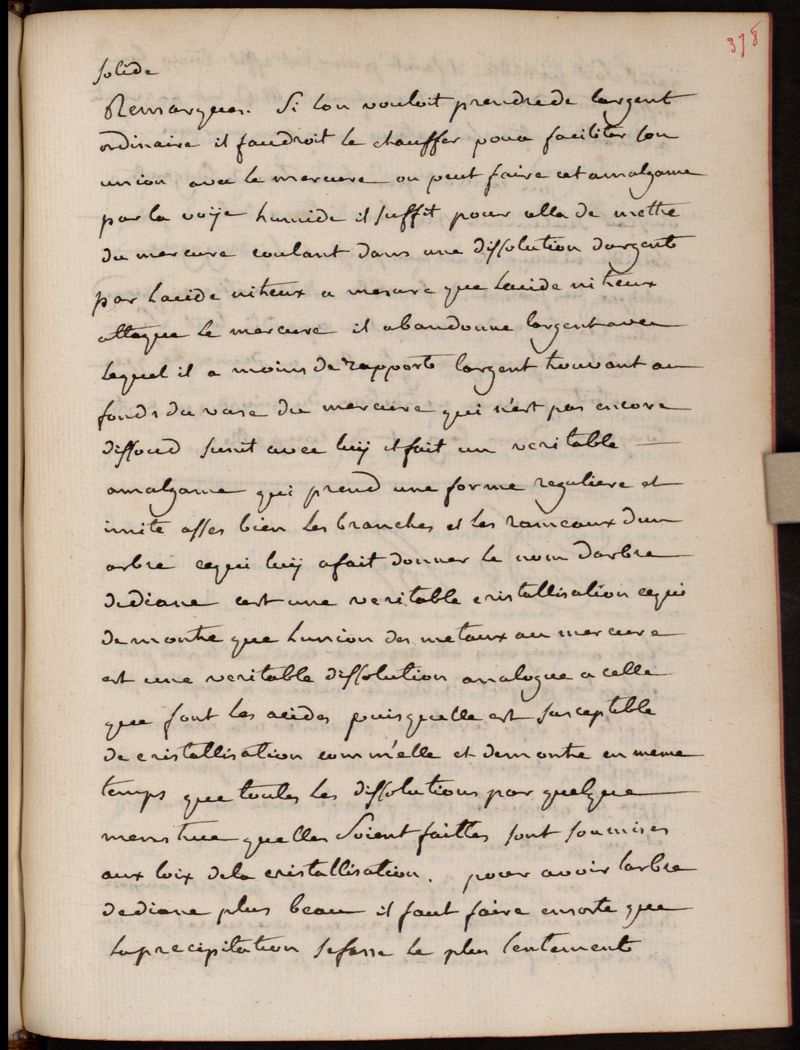 378
solide
Remarques. Si lon vouloit prendre de largent
ordinaire il faudroit le chauffer pour faciliter son
union avec le mercure on peut faire cet amalgame
par la voije humide il suffit pour cella de mettre
du mercure coulant dans une dissolution dargent
par lacide nitreux a mesure que lacide nitreux
attaque le mercure il abandonne largent avec
lequel il a moins de rapports largent trouvant au
fonds du vase du mercure qui n'est pas encore
dissoud sunit avec luij il fait un veritable
amalgame qui prend une forme reguliere et
imite asses bien les branches et les rameaux dun
arbre cequi luij a fait donner le nom darbre
dediane cest une veritable cristallisation cequi
demontre que lunion des metaux au mercure
est une veritable dissolution analogue a celle
que font les acides puisquelle est susceptible
de cristallisation comm'elle et demontre en meme
temps que toutes les dissolutions par quelque
menstrue quelles soient faittes sont soumises
aux loix dela cristallisation. pour avoir larbre
dediane plus beau il faut faire ensorte que
laprecipitation sefasse le plus lentement